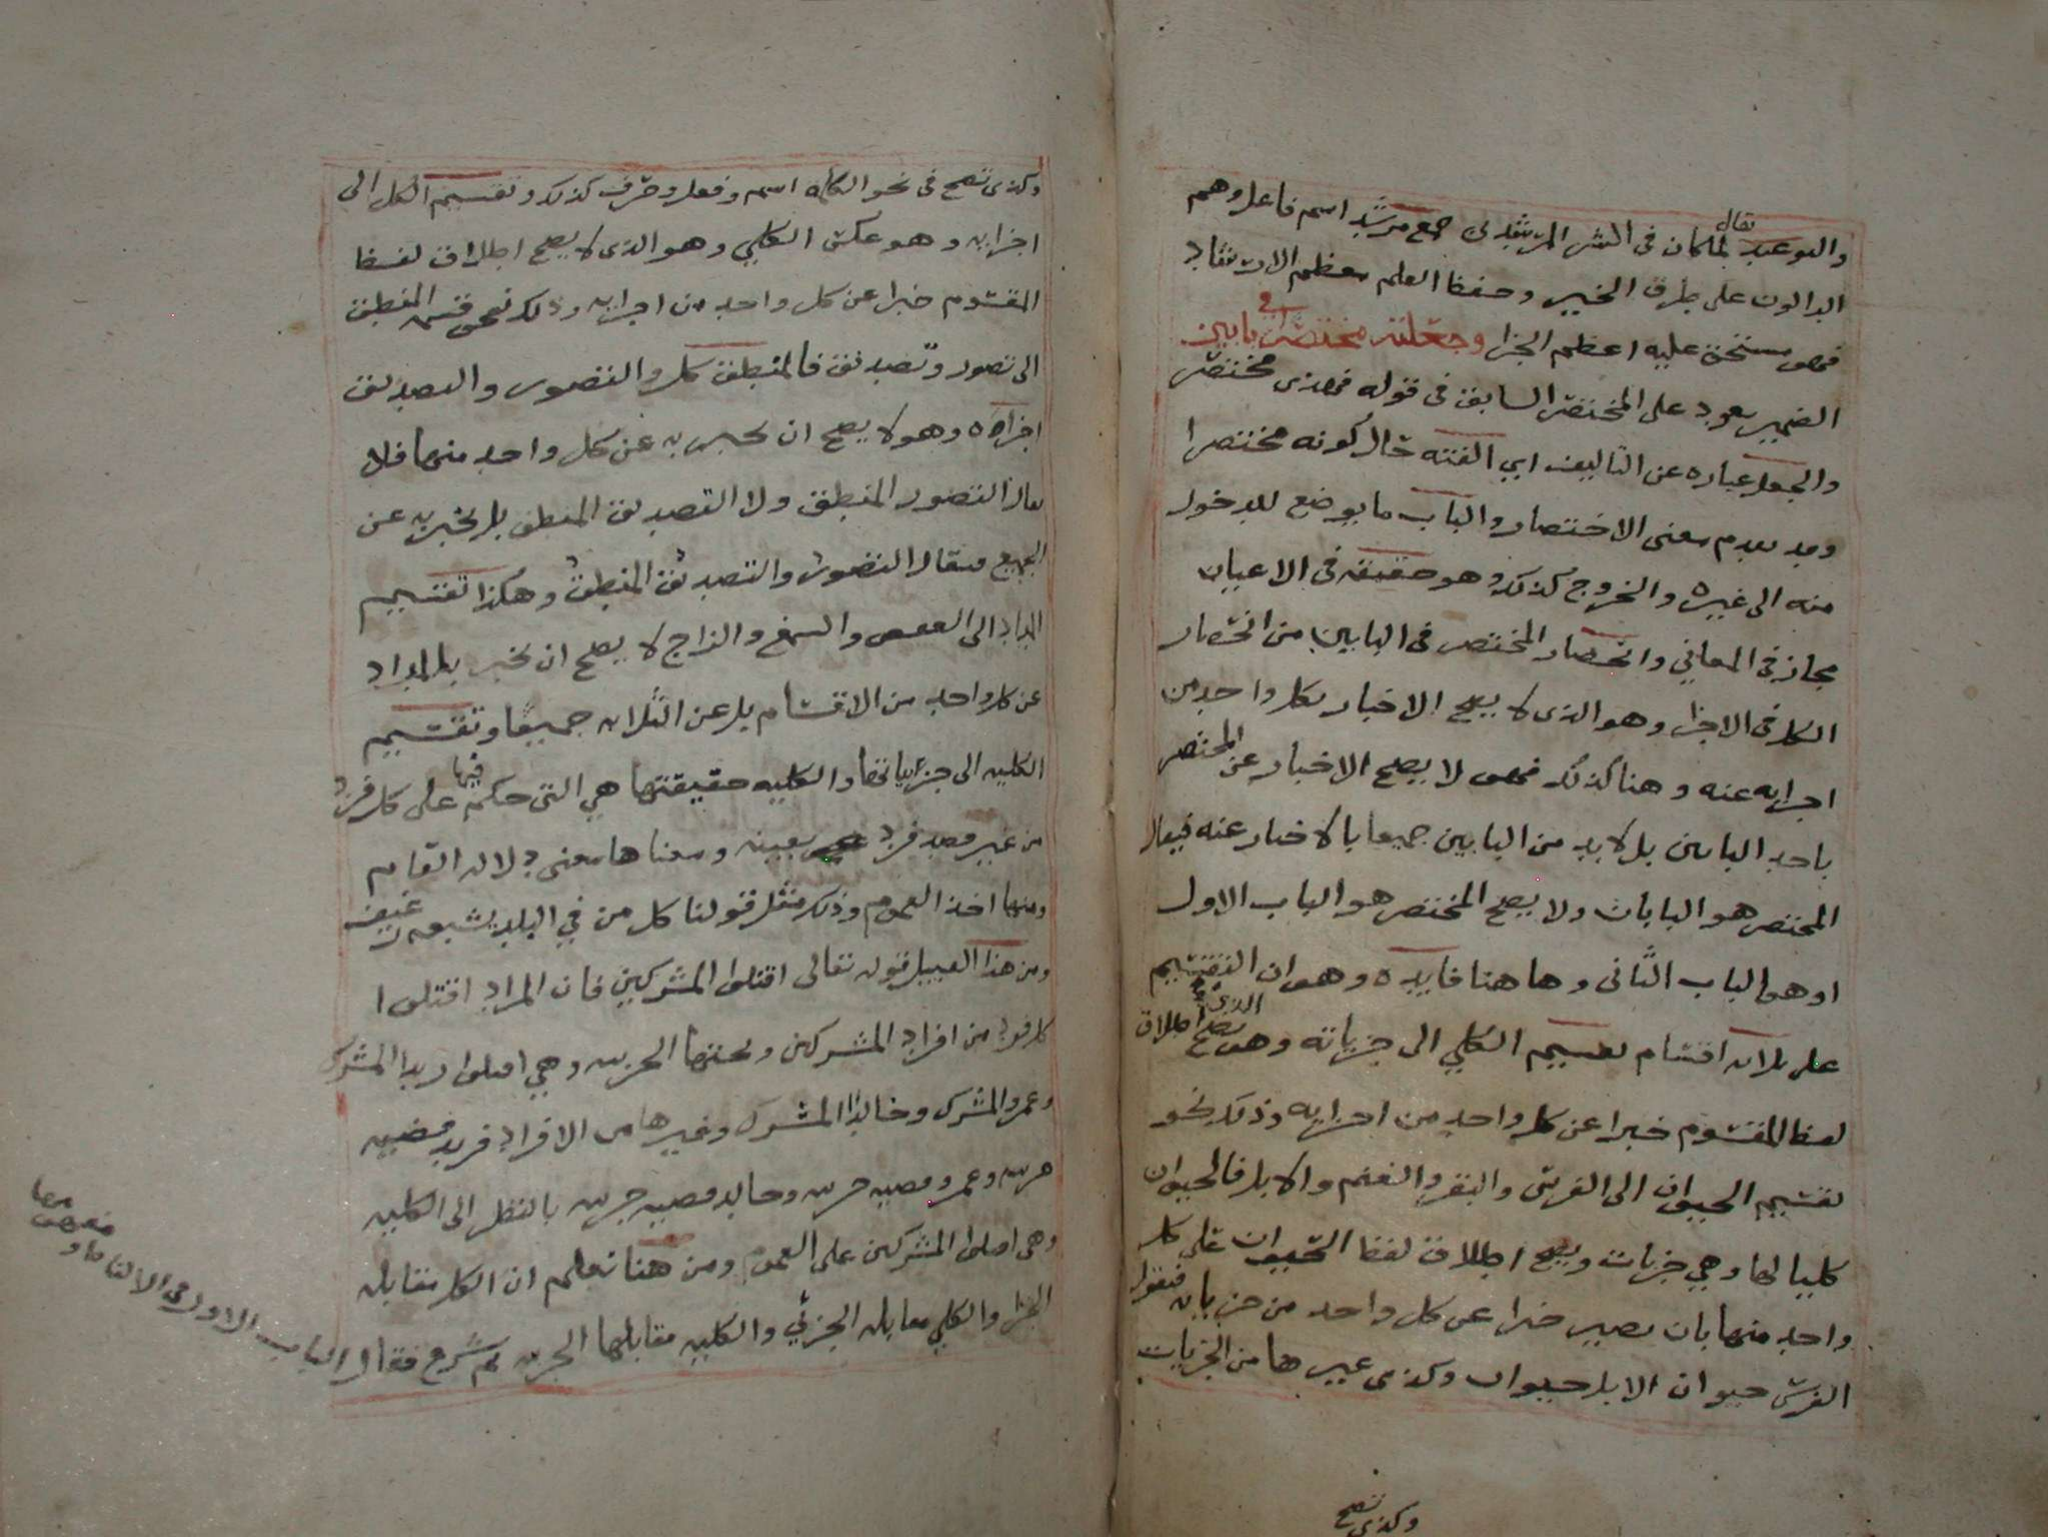 والتوعد يقال لما كان في الشر المرشدين جمع مرشد اسم فاعل وهم
الدالون على طرق الخير وحفظ العلم معظم الارشاد
فهو مستحق عليه اعظم الجزا وجعلته مختصرا في بابين
الضمير يعود على المختصر السابق في قوله فهذى مختصر
والجعل عباره عن التاليف اي الفته حال كونه مختصرا
وقد تقدم معنى الاختصار والباب ما يوضع للدخول
منه الى غيره والخروج كذلك وهو حقيقه في الاعيان
مجاز في المعاني وانحصار المختصر في البابين من انحصار
الكل في الاجزا وهو الذى لا يصح الاخبار بكل واحد من
اجزايه عنه وهنا كذلك فهو لا يصح الاخبار عن المختصر
باحد البابين بل لابد من البابين جميعا بالاخبار عنه فيقال
المختصر هو البابان ولا يصح المختصر هو الباب الاول
او هو الباب الثانى وهاهنا فايده وهو ان التقسيم
على ثلاثه اقسام تقسيم الكلي الى جزياته وهو الذي يصح اطلاق
لفظ المقسوم خبرا عن كل واحد من اجزايه وذلك نحو
تقسيم الحيوان الى الفرس والبقر والغنم والابل فالحيوان
كليا لها وهي جزيات ويصح اطلاق لفظ الحيوان على كل
واحد منها بان يصير خبرا عن كل واحد من جزياته فتقول
الفرس حيوان الابل حيوان وكذى غيرها من الجزيات
وكذى تصح
وكذى تصح في نحو الكلمه اسم وفعل وحرف كذلك وتقسيم الكل الى
اجزايه وهو عكس الكلي وهو الذى لا يصح اطلاق لفظ
المقسوم خبرا عن كل واحد من اجزايه وذلك نحو قسم المنطق
الى تصور وتصديق فالمنطق كل والتصور والتصديق
اجزاوه وهو لا يصح ان يخبر به عن كل واحد منهما فلا
يقال التصور المنطق ولا التصديق المنطق بل يخبر به عن
الجميع فيقال التصور والتصديق المنطق وهكذا تقسيم
المداد الى العفص والصمغ والزاج لا يصح ان يخبر بالمداد
عن كل واحد من الاقسام بل عن الثلاثه جميعا وتقسيم
الكليه الى جزياتها والكليه حقيقتها هي التى حكم فيها على كل فرد
من غير قصد فرد بعينه ومعناها معنى دلاله العام
ومنها اخذ العموم وذلك مثل قولنا كل من في البلد يشبعه رغيف
ومن هذا القبيل قوله تعالى اقتلوا المشركين فان المراد اقتلوا
كل فرد من افراد المشركين وتحتها الجزيه وهي اقتلوا زيدا المشرك
وعمرو المشرك وخالدا المشرك وغيرها من الافراد فزيد قضيه
جزيه وعمرو قضيه جزيه وخالد قضيه جزيه بالنظر الى الكليه
وهى اقتلوا المشركين على العموم ومن هنا تعلم ان الكل مقابله
الجزا والكلي مقابله الجزئي والكليه مقابلها الجزيه ثم شرع فقال الباب الاول في الالفاظ و